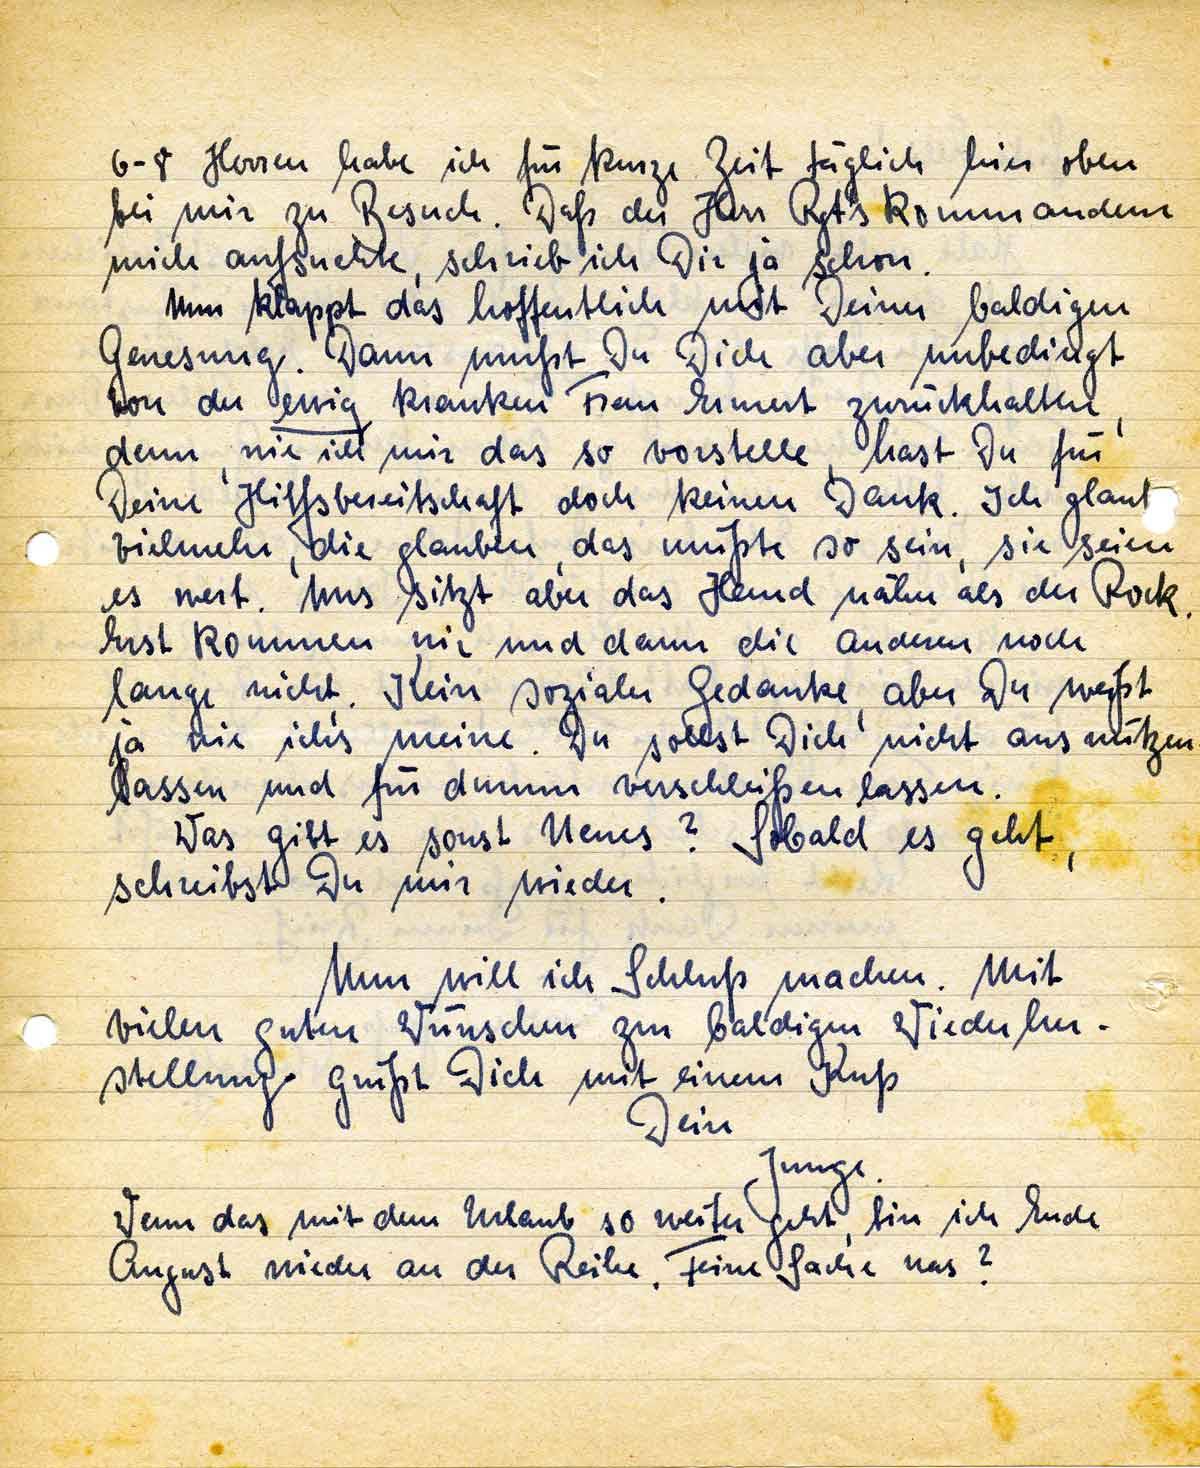 6-8 Herren habe ich für kurze Zeit täglich hier oben
bei mir zu Besuch. Daß der Herr Rgt's Kommandeur
mich aufsuchte, schrieb ich Dir ja schon.
Nun klappt das hoffentlich mit Deiner baldigen
Genesung. Dann mußt Du Dich aber unbedingt
von der ewig kranken Frau Ermert zurückhalten,
denn, wie ich mir das so vorstelle, hast Du für
Deine Hilfsbereitschaft doch keinen Dank. Ich glaub
vielmehr, die glauben, das müßte so sein, sie seien
es wert. Uns sitzt aber das Hemd näher als der Rock.
Erst kommen wir und dann die anderen noch
lange nicht. Kein sozialer Gedanke, aber Du weißt
ja wie ich's meine. Du sollst Dich nicht ausnützen
lassen und für dumm verschleißen lassen.
Was gibt es sonst Neues? Sobald es geht,
schreibst Du mir wieder.
Nun will ich Schluß machen. Mit
vielen guten Wünschen zur baldigen Wiederher-
stellung grüßt Dich mit einem Kuß
Dein
Junge.
Wenn das mit dem Urlaub so weiter geht, bin ich Ende
August wieder an der Reihe. Feine Sache was?